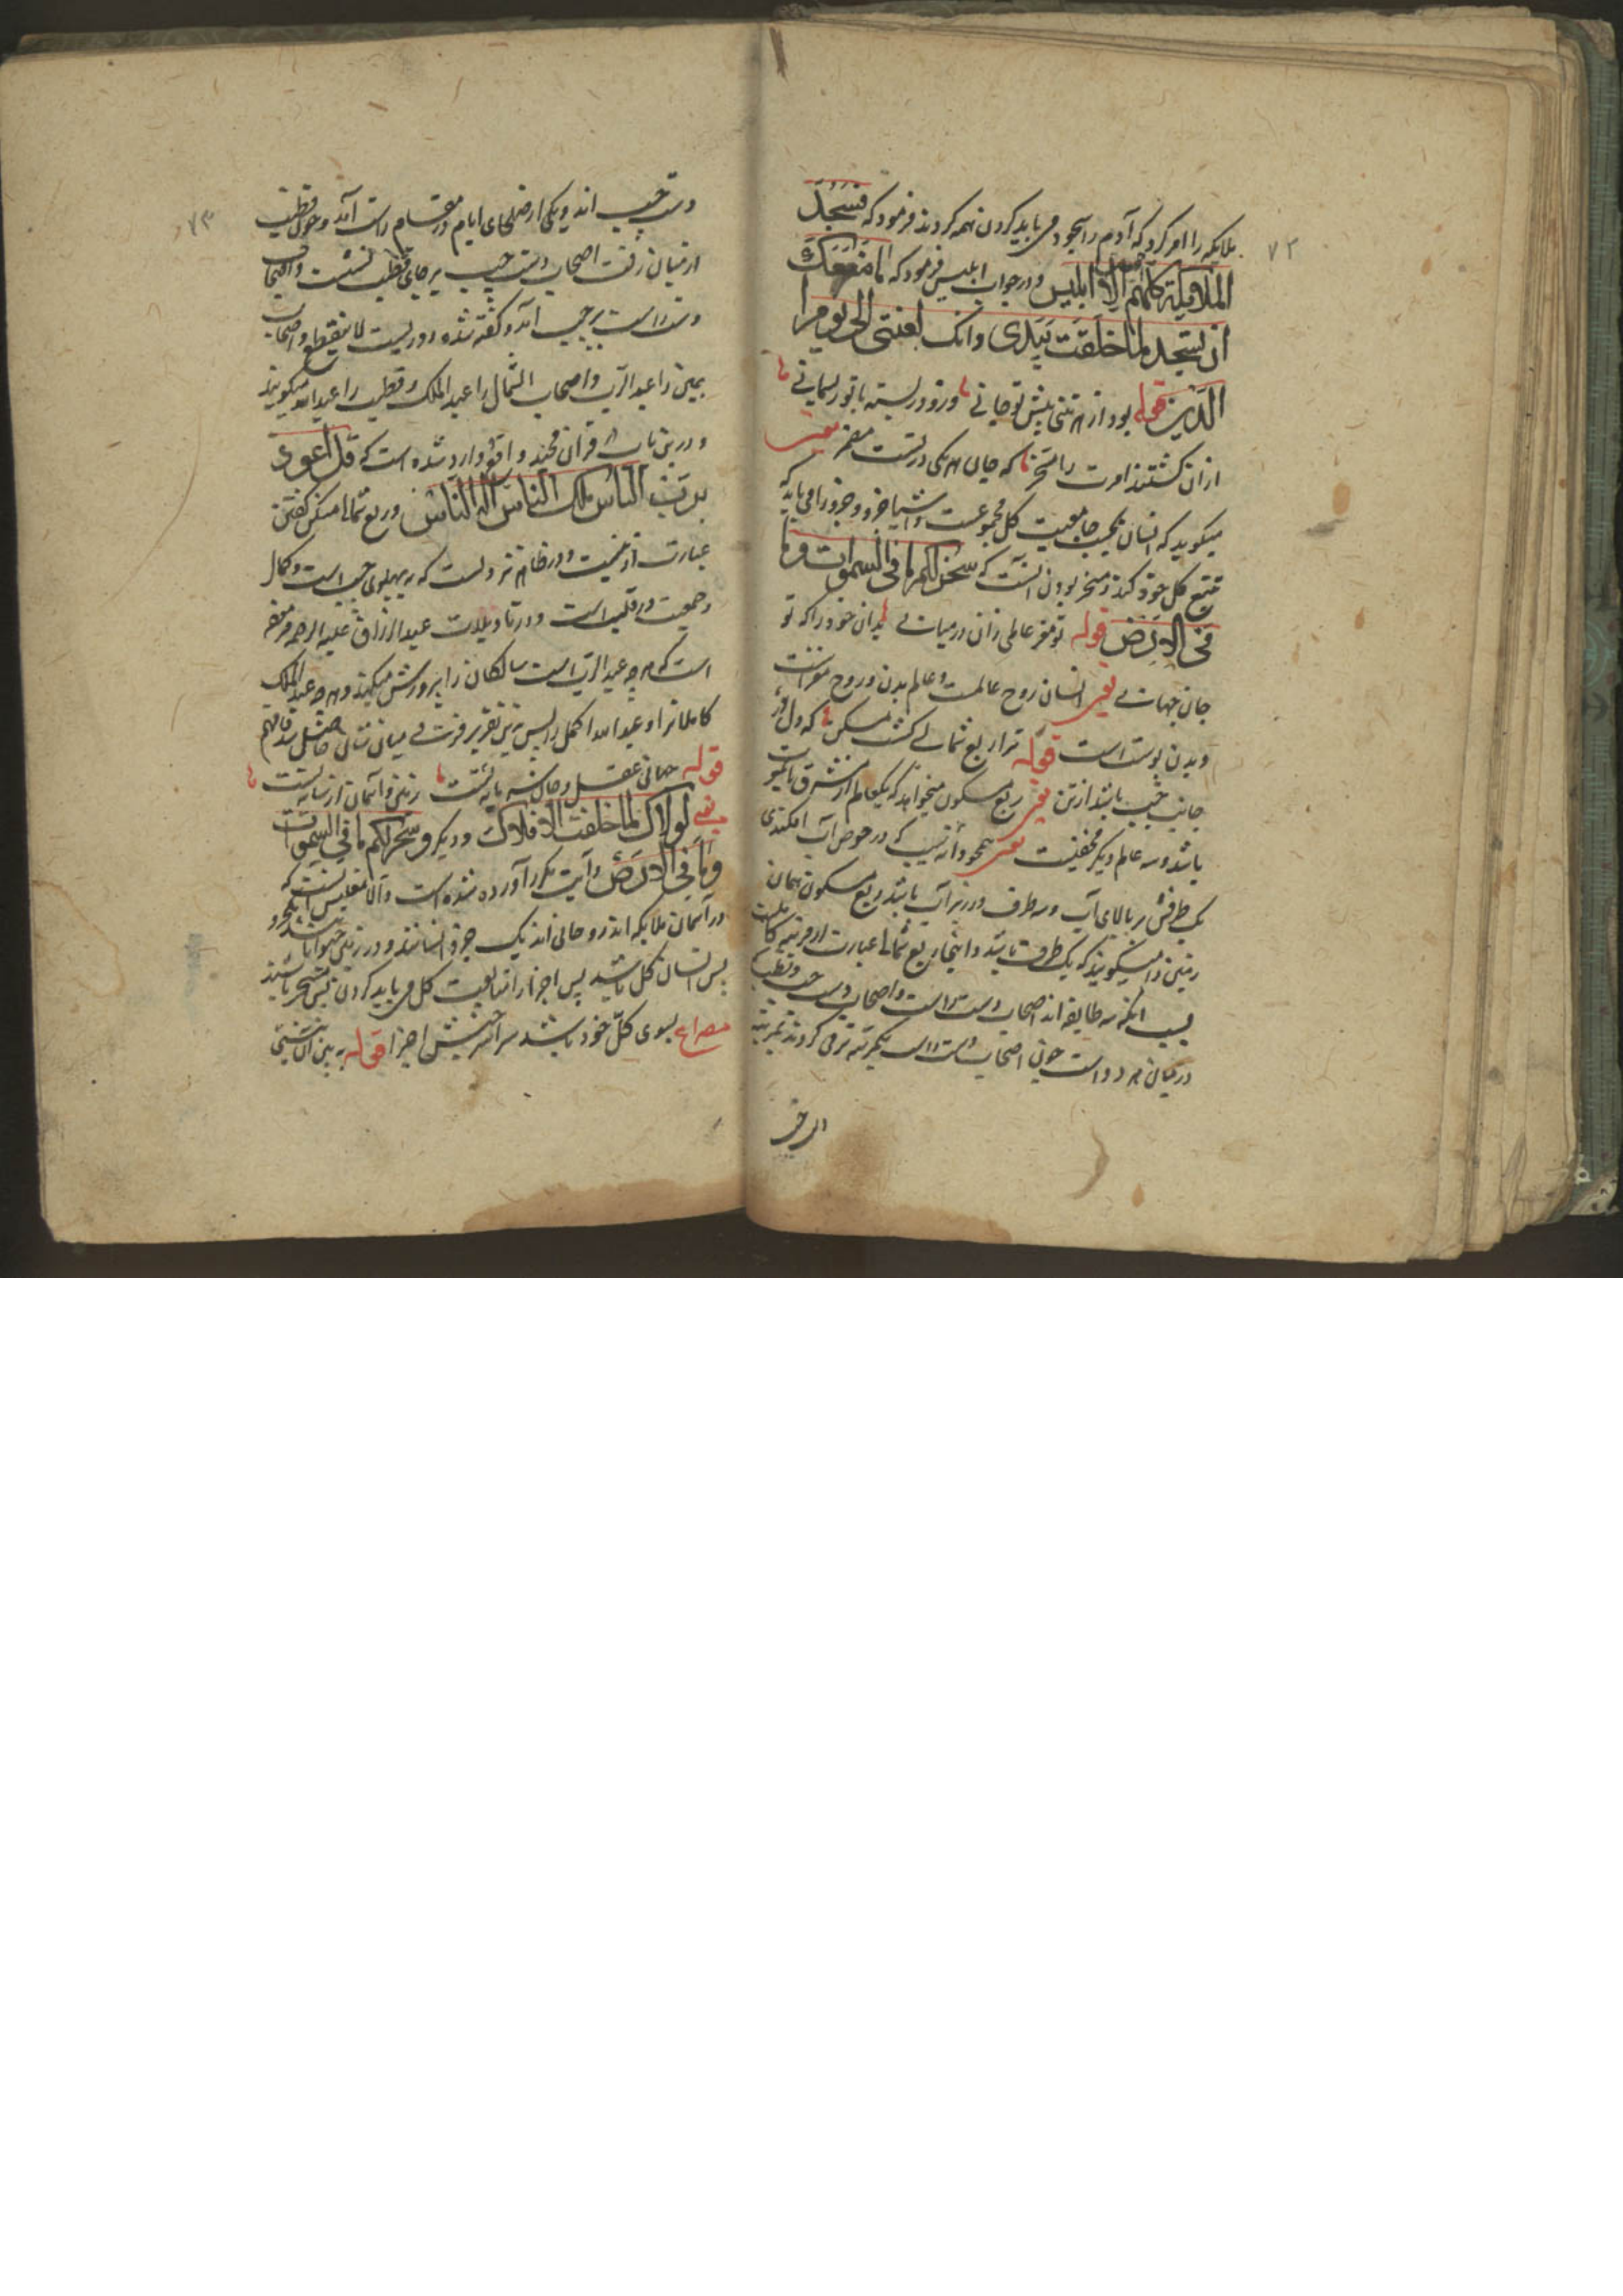 ۷۲
ملایکه را امر کرد که آدم را سجود می باید کردن همه کردند فرمود که فسجد
الملائکة کلهم الا ابلیس و در جواب ابلیس فرمود که ما منعک
ان تسجد لما خلقت بیدی وانک لعنتی الی یوم
الدین قوله بود از هر تنی پیش تو جانی وزو در بسته با تو ریسمانی
ازان گشتند امرت را مسخر که جان هر یکی در تست مضمر یعنی
میگوید که انسان بحسب جامعیت کل مجموعست و اشیا جزو و جزو را می باید که
تتبع کل خود کند و مسخر بودن آنست که سخر لکم ما فی السموات وما
فی الارض قوله تو مغز عالمی زان در میانی بدان خود را که تو
جان جهانی یعنی انسان روح عالمست و عالم بدن و روح مغز است
و بدن پوست است قوله ترا ربع شمالی گشت مسکن که دل در
جانب چپ باشد از تن یعنی ربع مسکون میخواهد که یکعالم از مشرق تا مغرب
باشد و سه عالم دیگر مخفیست یعنی همچو دانه سیب که در حوض آب افکندی
یک طرفش بر بالای آب و سه طرف در زیر آب باشد ربع مسکون همان
زمین را میگویند که یک طرف باشد و اینجا ربع شمالی عبارت از مرتبه کاملیت
بسبب آنکه سه طایفه اند اصحاب دست راست و اصحاب دست چپ و قطب
در میان هر دو است چون اصحاب دست راست یکمرتبه ترقی کردند بمرتبه
۷۳
دست چپ اند و یکی از صلحای ایام در مقام راست آمد و چون قطب
از میان رفت اصحاب دست چپ بر جای قطب نشست و اصحاب
دست راست بر چپ آمد و گفته شده دوریست لا ینقطع و اصحاب
یمین را عبد الرب و اصحاب الشمال را عبد الملک و قطب را عبد الله میگویند
و درین باب قرآن مجید واقع وارد شده است که قل اعوذ
برب الناس ملک الناس اله الناس و ربع شمالی مسکن گفتن
عبارت از و در ظاهر نیز دلست که بر پهلوی چپ است و کمال
و جمعیت در قلب است و در تاویلات عبد الرزاق علیه الرحمه
است که هر چه عبد الرب است سالکان را پرورش میکند و هر چه عبد الملک
کاملانرا و عبد الله اکمل را پس برین تقریر فرقت فی میان شان حاصل شد فافهم
قوله جهان عقل و جان سرمایه تست زمین و آسمان پیرایه تست
یعنی لولاک لما خلقت الافلاک و دیگر وسخر لکم ما فی السموات
وما فی الارض و آیت مکرر آورده شده است و الا معنیش اینست که
در آسمان ملایکه اند روحانی اند یک جزو انسانند و در زمین حیوانات
پس انسان کل باشد پس اجزا را متابعت کل می باید کردن پس مسخر باشند
مصراع بسوی کل خود باشد سراسر جنبش اجزا قوله ببین آن نیستی